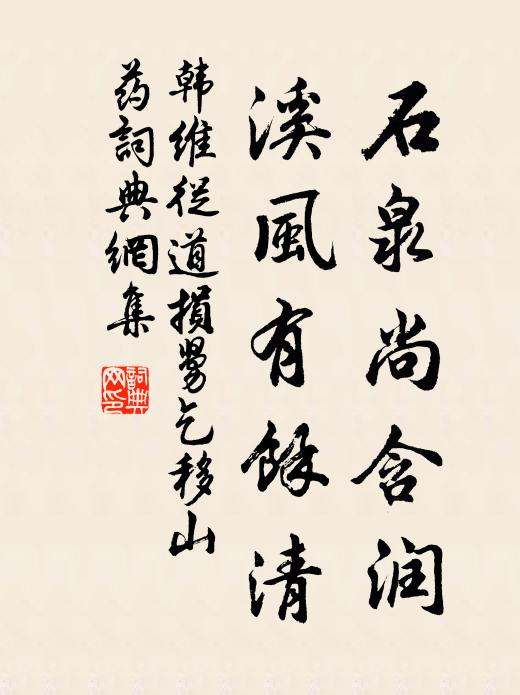 石泉尚含润
溪風有餘清
韩維從道損舅乞移山
药詞典網集
詞典
网印